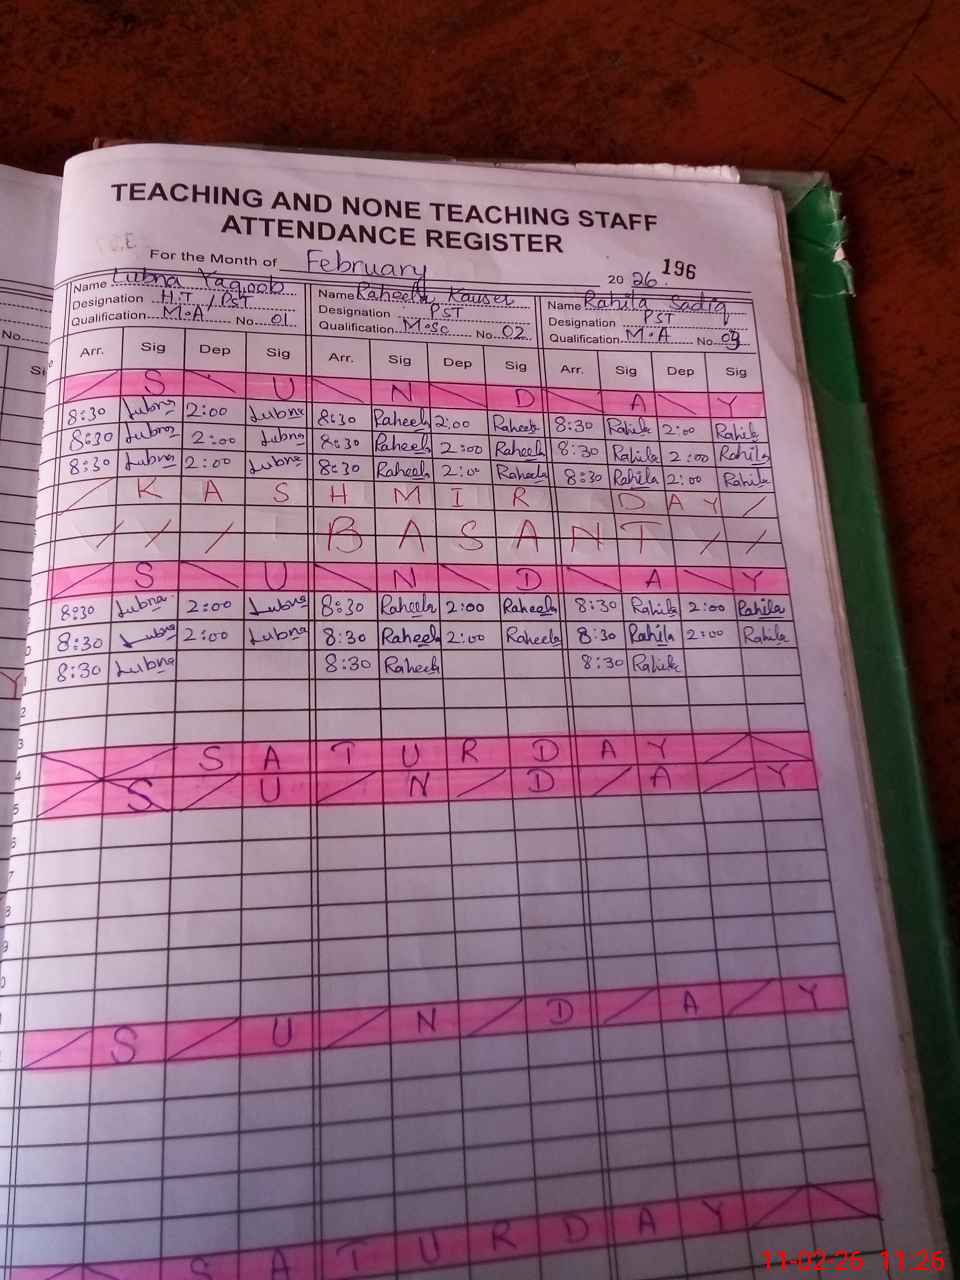 TEACHING AND NONE TEACHING STAFF
ATTENDANCE REGISTER
For the Month of February 2026. 196
Name Lubna Yaqoob Name Raheela Kauser Name Rahila Sadiq
Designation H.T / PST Designation PST Designation PST
Qualification M.A No 01 Qualification M.Sc No 02 Qualification M.A No 03
Arr. Sig Dep Sig Arr. Sig Dep Sig Arr. Sig Dep Sig
S U N D A Y
8:30 Lubna 2:00 Lubna 8:30 Raheela 2:00 Raheela 8:30 Rahila 2:00 Rahila
8:30 Lubna 2:00 Lubna 8:30 Raheela 2:00 Raheela 8:30 Rahila 2:00 Rahila
8:30 Lubna 2:00 Lubna 8:30 Raheela 2:00 Raheela 8:30 Rahila 2:00 Rahila
K A S H M I R D A Y
B A S A N T
S U N D A Y
8:30 Lubna 2:00 Lubna 8:30 Raheela 2:00 Raheela 8:30 Rahila 2:00 Rahila
8:30 Lubna 2:00 Lubna 8:30 Raheela 2:00 Raheela 8:30 Rahila 2:00 Rahila
8:30 Lubna 8:30 Raheela 8:30 Rahila
S A T U R D A Y
S U N D A Y
S U N D A Y
S A T U R D A Y
11-02-26 11:26